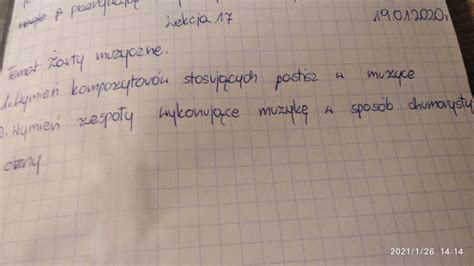 Lekcja 17 19.01.2020r
Temat Żarty muzyczne.
1. Wymień kompozytorów stosujących pastisz w muzyce
2. Wymień zespoły wykonujące muzykę w sposób chumorysty
czny.
2021/1/26 14:14